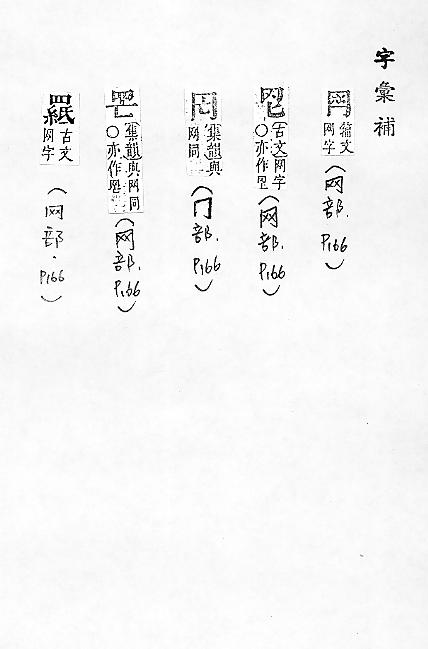 字彙補
籀文
网字
(网部.P166)
古文网字
○亦作
(网部.P166)
集韻與
网同
(冂部.P166)
集韻與网同
○亦作
(网部.P166)
古文
网字
(网部.P166)